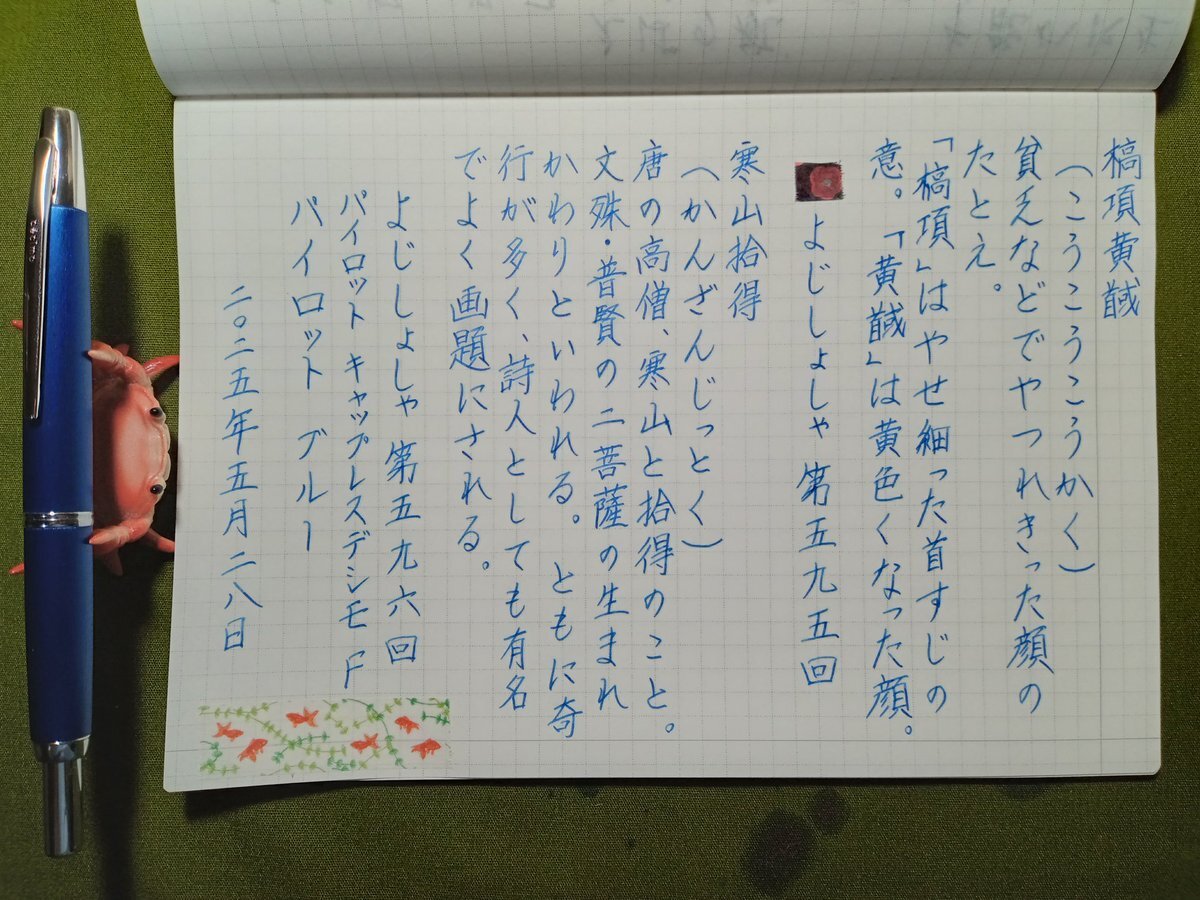 槁項黄馘
（こうこうこうかく）
貧乏などでやつれきった顔の
たとえ。
「槁項」はやせ細った首すじの
意。「黄馘」は黄色くなった顔。
よじしょしゃ 第五九五回
寒山拾得
（かんざんじっとく）
唐の高僧、寒山と拾得のこと。
文殊・普賢の二菩薩の生まれ
かわりといわれる。ともに奇
行が多く、詩人としても有名
でよく画題にされる。
よじしょしゃ 第五九六回
パイロット キャップレスデシモ F
パイロット ブルー
二〇二五年五月二八日